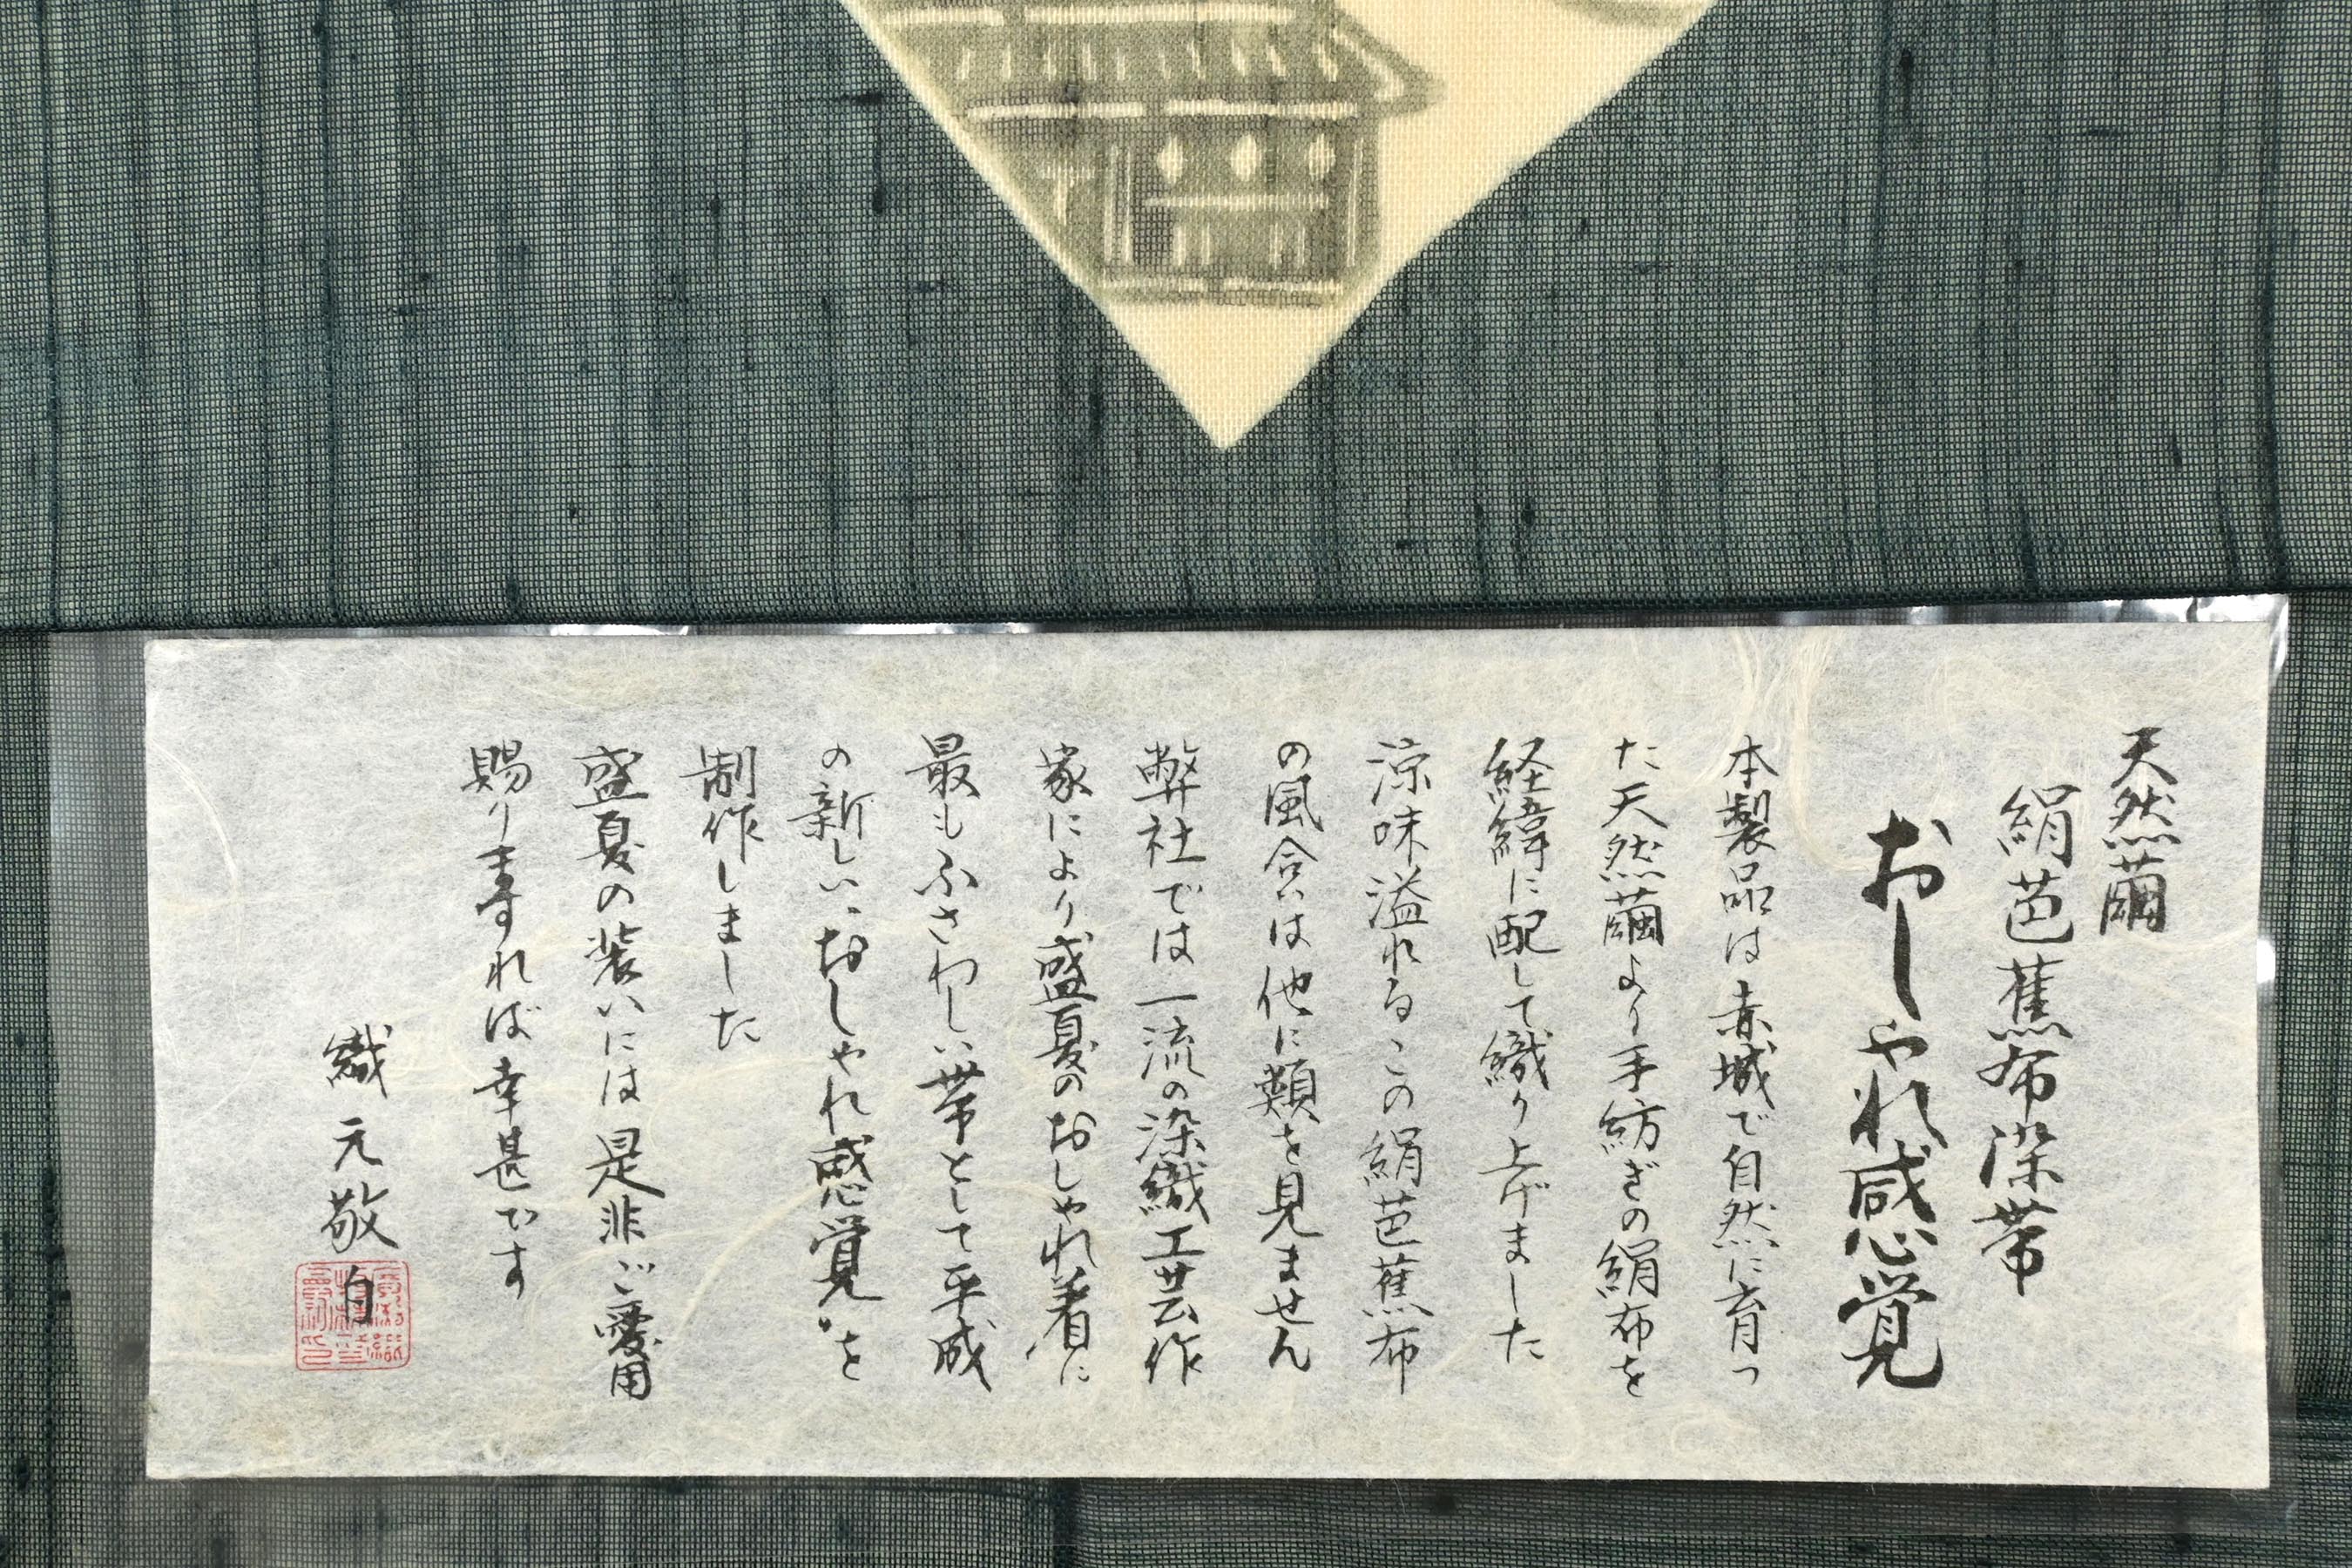 天然繭
絹芭蕉布染帯
おしゃれ感覚
本製品は赤城で自然に育っ
た天然繭より手紡ぎの絹布を
経緯に配して織り上げました
涼味溢れるこの絹芭蕉布
の風合いは他に類を見ません
弊社では一流の染織工芸作
家により盛夏のおしゃれ着に
最もふさわしい帯として平成
の新しい〝おしゃれ感覚〟を
制作しました
盛夏の装いには是非ご愛用
賜りますれば幸甚です
織元敬白